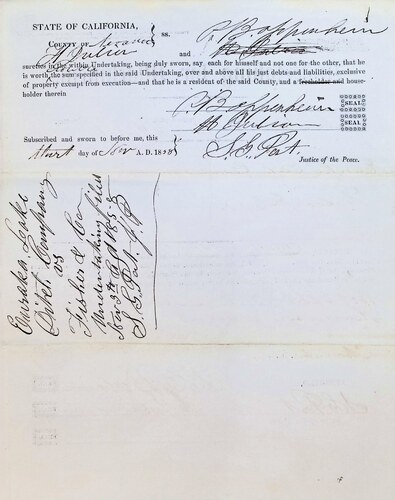 STATE OF CALIFORNIA, } ss.
COUNTY OF Nevada
H Dubion and P. Boppenheim
sureties in the within Undertaking, being duly sworn, say, each for himself and not one for the other, that he
is worth the sum specified in the said Undertaking, over and above all his just debts and liabilities, exclusive
of property exempt from execution—and that he is a resident of the said County, and a freeholder and house-
holder therein
P. Boppenheim SEAL
H Dubion SEAL
Subscribed and sworn to before me, this
day of Nov A. D. 185
S. G. Pat.
Justice of the Peace.
Eureka Lake
Ditch Company
vs
Fisher & Co
Undertaking filed
Nov 3d AD 185
S. G. Pat. J. P.